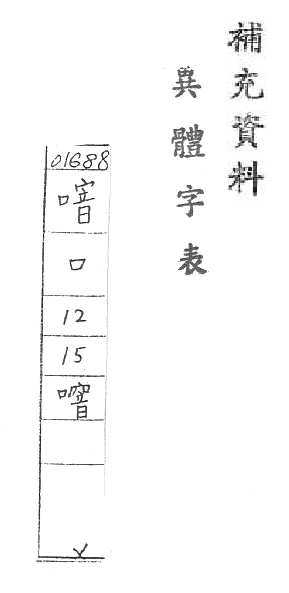 補充資料
異體字表
01688
口
12
15